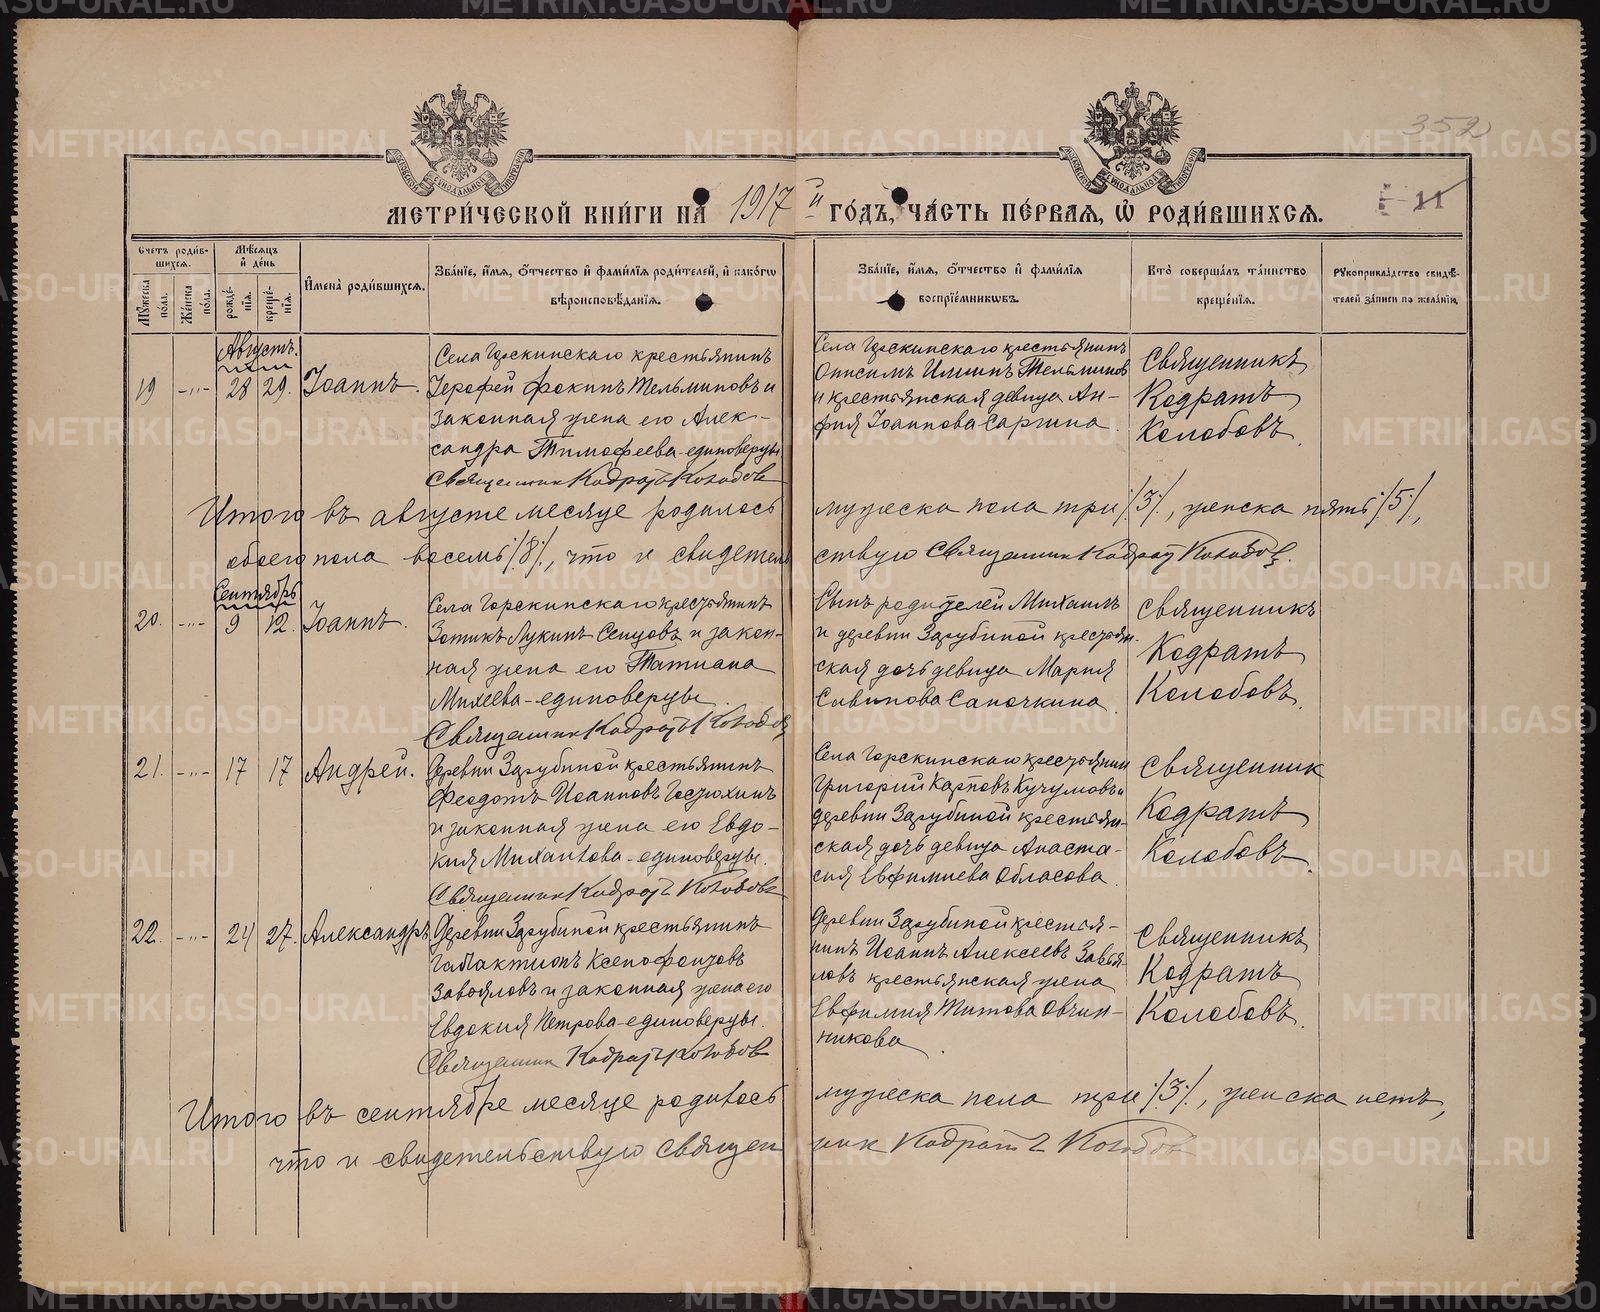 352
МОСКОВСКОЙ СѴНОДАЛЬНОЙ ТИПОГРАФІИ
МОСКОВСКОЙ СѴНОДАЛЬНОЙ ТИПОГРАФІИ
МЕТРИ́ЧЕСКОЙ КНИ́ГИ НА 1917й ГО́ДЪ, ЧА́СТЬ ПЕ́РВАЯ, Ѽ РОДИ́ВШИХСЯ.
11
Счетъ роди́вшихся.
Мѣ́сяцъ и де́нь
Мꙋжеска по́ла.
Же́нска по́ла.
рожде́нїя.
креще́нїя.
И҆мена̀ роди́вшихся.
Зва́нїе, и҆́мя, ѻ҆́тчество и҆ фами́лїя роди́телей, и҆ како́гѡ вѣроисповѣ́данїя.
Зва́нїе, и҆́мя, ѻ҆́тчество и҆ фами́лїя воспрїе́мникѡвъ.
Кто̀ соверша́лъ та́инство креще́нїя.
Рꙋкоприкла́дство свидѣ́телей за́писи по жела́нїю.
Августъ.
19 -"- 28 29. Іоаннъ.
Села Горскинскаго крестьянинъ
Іерофей Фокинъ Тельминовъ и
законная жена его Алек-
сандра Тимофеева-единоверцы
Священник Кодратъ Колобовъ
Села Горскинскаго крестьянинъ
Онисимъ Тельминов
и крестьянская девица Ан-
фия Іоаннова Саргина.
Священникъ
Кодратъ
Колобовъ.
Итого въ августе месяце родилось мужеска пола три /3/, женска пять /5/,
обоего пола восемь /8/, что и свидетельствую Священник Кодрат Колобов.
Сентябрь
20. -"- 9 12. Іоаннъ.
Села Горскинскаго крестьянинъ
Зотикъ Лукинъ Сенцовъ и закон-
ная жена его Татиана
Михеева-единоверцы.
Священник Кодратъ Колобов
Сынъ родителей Михаилъ
и деревни Зарубиной крестьян-
ская дочь девица Мария
Савинова Сапочкина.
Священникъ
Кодратъ
Колобовъ.
21. -"- 17 17 Андрей.
Деревни Зарубиной крестьянинъ
Феодотъ Иоанновъ
и законная жена его Евдо-
кия Михайлова-единоверцы.
Священник Кодратъ Колобовъ
Села Горскинскаго крестьянин
Григорий Карповъ Кучумовъ и
деревни Зарубиной крестьян-
ская дочь девица Анаста-
сия Евфимиева Обласова.
Священник
Кодратъ
Колобовъ.
22. -"- 24 27. Александръ
Деревни Зарубиной крестьянинъ
Галактионъ Ксенофонтовъ
Завьяловъ и законная жена его
Евдокия Петрова-единоверцы.
Священник Кодратъ Колобов
Деревни Зарубиной крестья-
нинъ Иоаннъ Алексеевъ Завья-
ловъ крестьянская жена
Евфимия Титова Овчин-
никова.
Священникъ
Кодратъ
Колобовъ.
Итого въ сентябре месяце родилось мужеска пола три /3/, женска нетъ,
что и свидетельствую Священник Кодратъ Колобов
METRIKI.GASO-URAL.RU